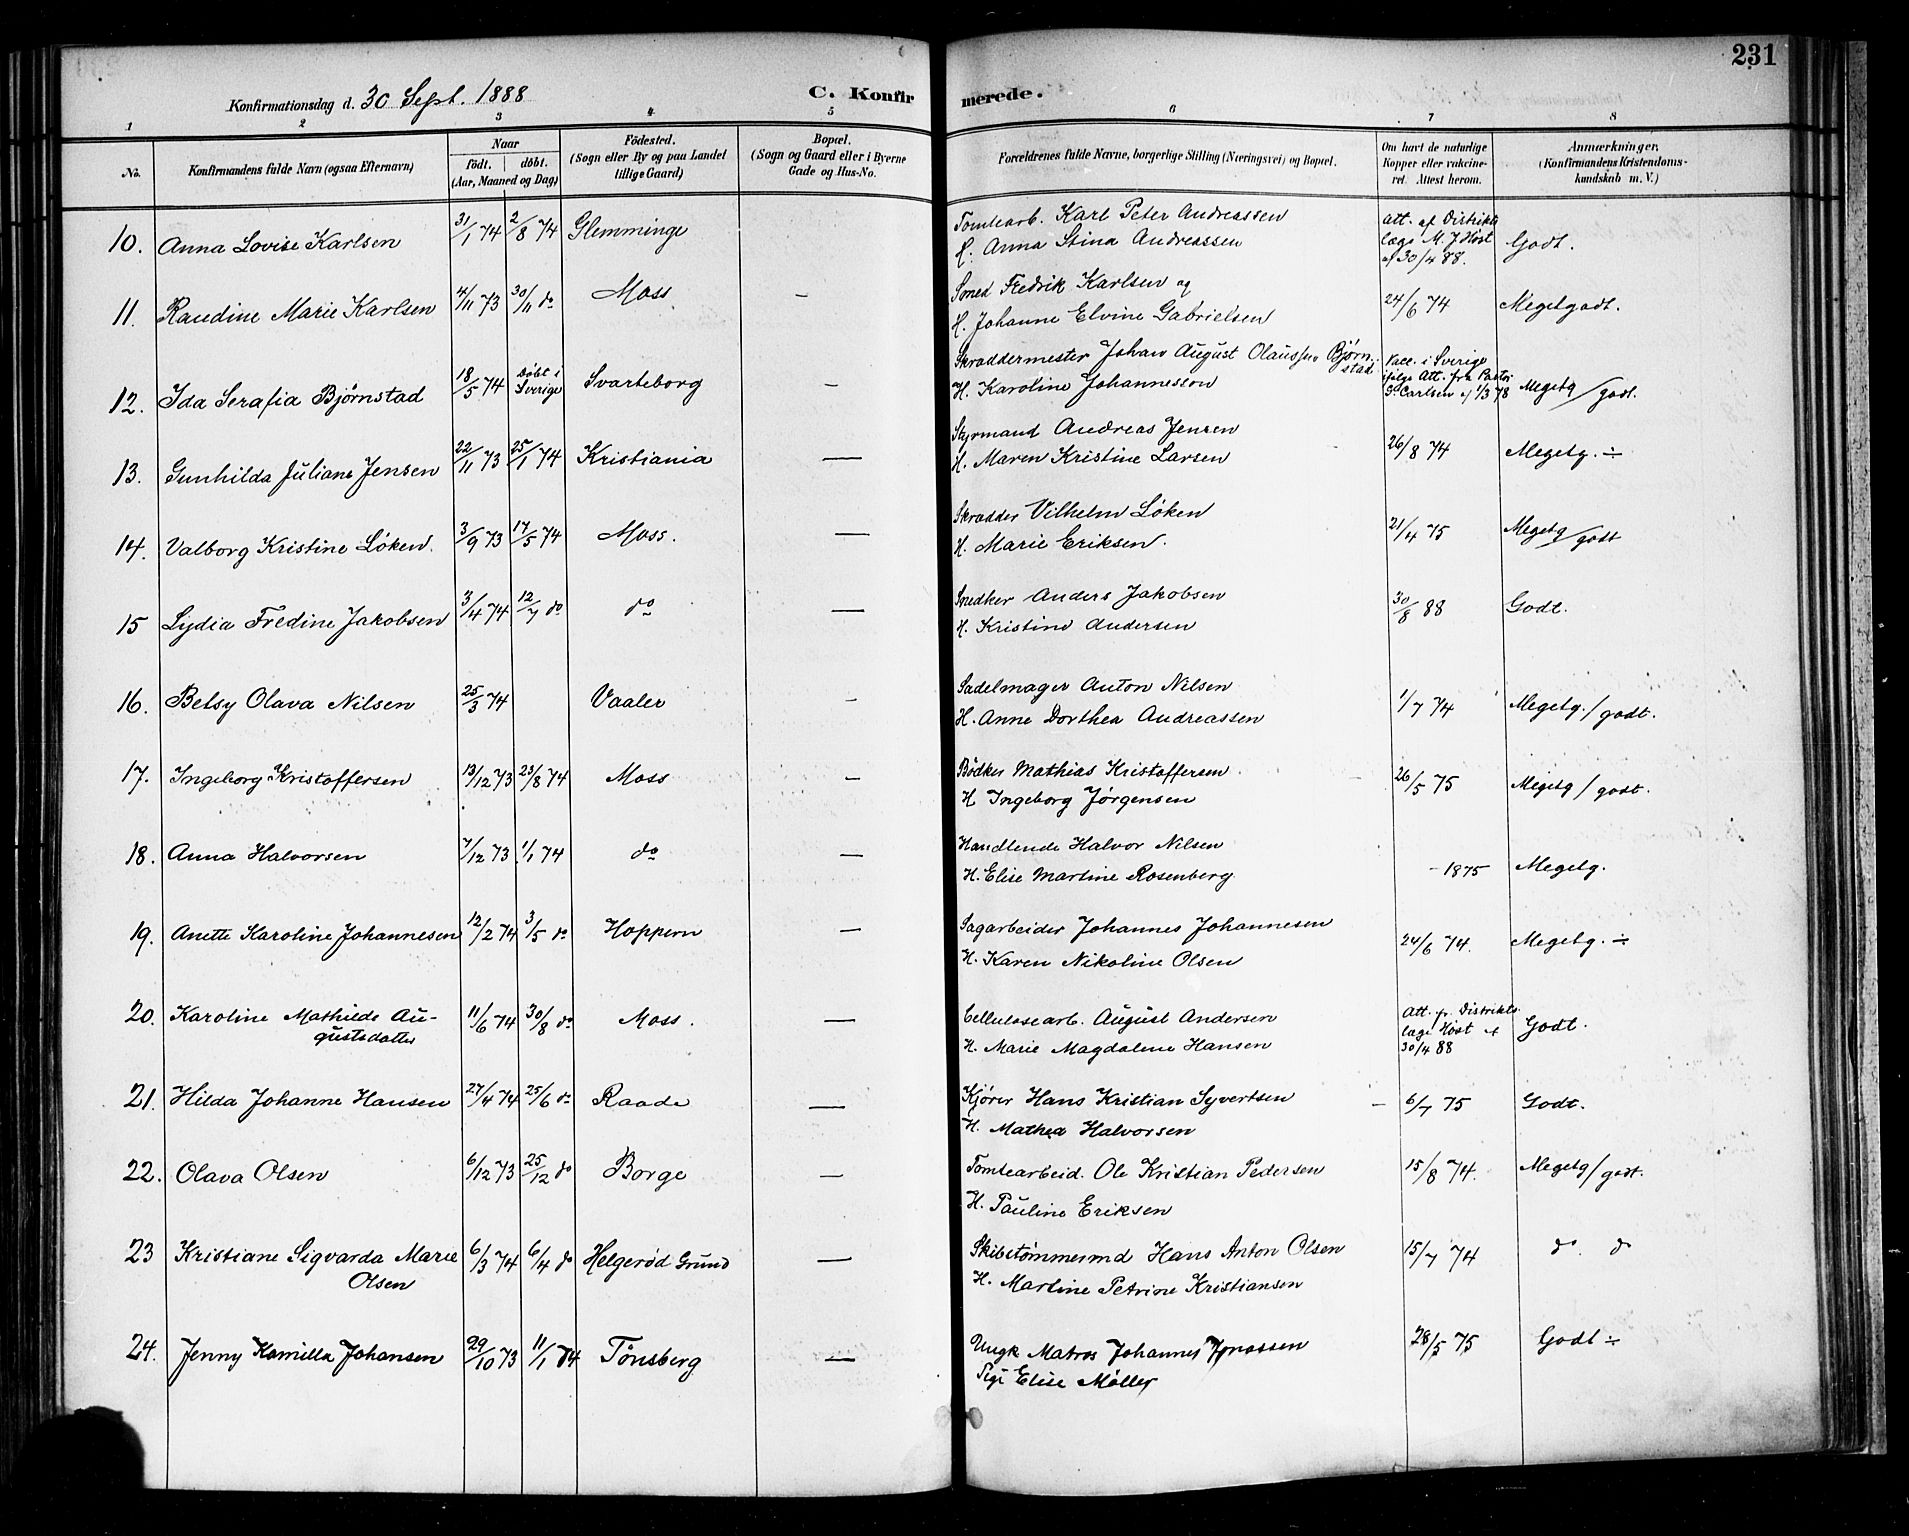 231
Konfirmationsdag d. 30 Sept. 1888 C. Konfirmerede.
1 2 3 4 5 6 7 8
No. Konfirmandens fulde Navn (ogsaa Efternavn) Naar födt. döbt. (Aar, Maaned og Dag) Födested. (Sogn eller By og paa Landet tillige Gaard) Bopæl. (Sogn og Gaard eller i Byerne Gade og Hus-No. Forældrenes fulde Navne, borgerlige Stilling (Næringsvei) og Bopæl. Om havt de naturlige Kopper eller vakcineret. Attest herom. Anmærkninger. (Konfirmandens Kristendomskundskab m. V.)
10. Anna Lovise Karlsen 31/1 74 2/8 74 Glemminge Tomtearb. Karl Peter Andreassen
H. Anna Stina Andreassen Att. af Distrikts
læge M. J Høst
af 30/4 88. Godt.
11. Raudine Marie Karlsen 4/11 73 30/11 do Moss — Smed Fredrik Karlsen og
H. Johanne Elvine Gabrielsen 24/6 74 Megetgodt.
12. Ida Serafia Bjørnstad 18/5 74 Døbt i Sverige Svarteborg — Skræddermester Johan August Olaussen Bjørnstad
H. Karoline Johannesson Vacc. i Sverige
ifølge Att. fra Pastor
Carlsen af 1/3 78 Megetg/godt.
13. Gunhilda Juliane Jensen 22/11 73 25/1 74 Kristiania — Styrmand Andreas Jensen
H. Maren Kristine Larsen 26/8 74 Megetg. ÷
14. Valborg Kristine Løken. 3/9 73 17/5 74 Moss. — Skrædder Vilhelm Løken
H. Marie Eriksen. 21/4 75 Megetg/godt
15 Lydia Fredine Jakobsen 3/4 74 12/7 do do — Snedker Anders Jakobsen
H. Kristine Andersen 30/8 88 Godt.
16. Betsy Olava Nilsen 25/3 74 Vaaler — Sadelmager Anton Nilsen
H. Anne Dorthea Andreassen 1/7 74 Megetg./godt.
17. Ingeborg Kristoffersen 13/12 73 23/8 74 Moss — Bödker Mathias Kristoffersen
H Ingeborg Jørgensen 26/5 75 Megetg/godt.
18. Anna Halvorsen 7/12 73 1/1 74 do — Handlende Halvor Nilsen
H. Elise Martine Rosenberg - 1875 Megetg.
19. Anette Karoline Johannesen 12/2 74 3/5 do Hoppern — Sagarbeider Johannes Johannesen
H. Karen Nikoline Olsen 24/6 74. Megetg. ÷
20. Karoline Mathilde Au-
gustsdatter 11/6 74 30/8 do Moss. — Cellulosearb. August Andersen
H. Marie Magdalene Hansen Att. fr. Distrikts
læge Høst af
30/4 88 Godt.
21. Hilda Johanne Hansen 27/4 74 25/6 do Raade — Kjører Hans Kristian Syvertsen
H. Mathea Halvorsen 6/7 75 Godt.
22. Olava Olsen 6/12 73 25/12 do Borge — Tomtearbeid. Ole Kristian Pedersen
H. Pauline Eriksen 15/8 74. Megetg/godt.
23 Kristiane Sigvarda Marie
Olsen 6/3 74 6/4 do Helgerød Grund — Skibstømmermd Hans Anton Olsen
H. Martine Petrine Kristiansen 15/7 74 do do
24. Jenny Kamilla Johansen 29/10 73 11/1 74 Tønsberg — Ungk Matros Johannes Jonassen
Pige Elise Møller 28/5 75 Godt ÷